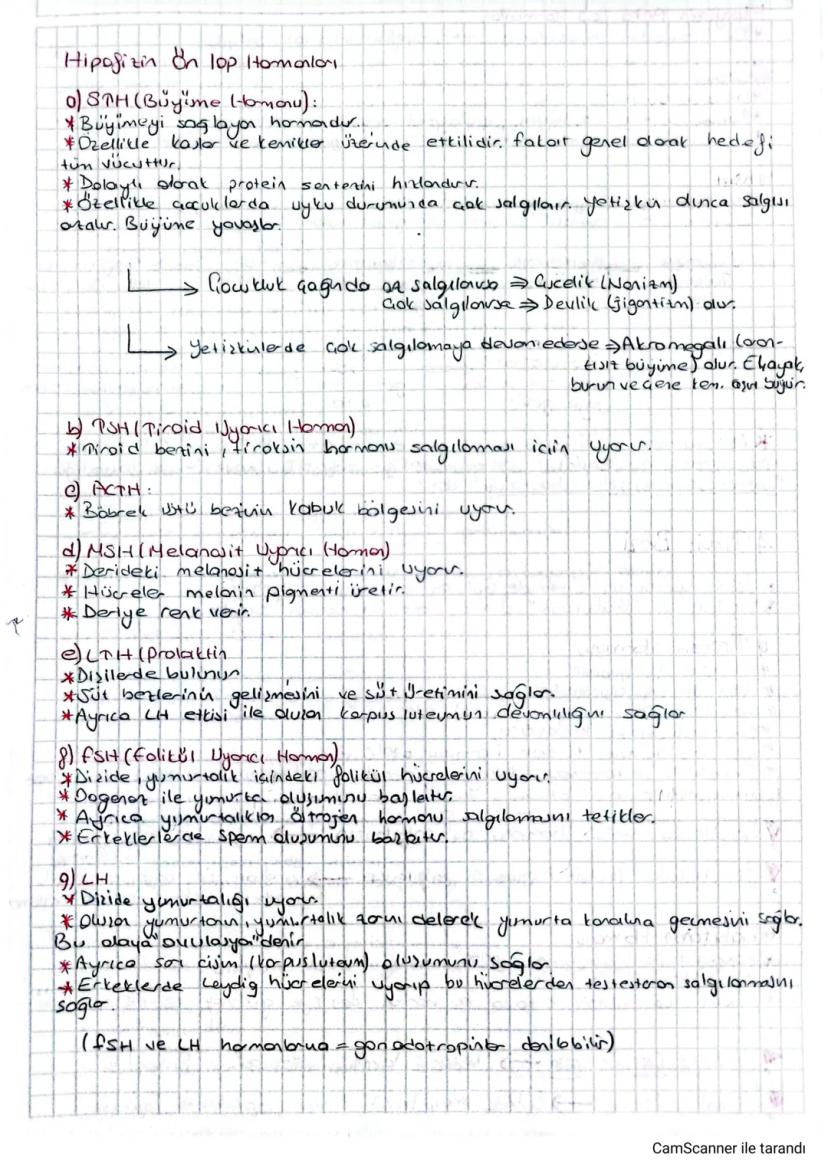 Hipofizin Ön lop Hormonları
a) STH (Büyüme Hormonu):
* Büyümeyi sağlayan hormondur.
* Özellikle kaslar ve kemikler üzerinde etkilidir. fakat genel olarak hedefi
tüm vücuttur.
* Dolaylı olarak protein sentezini hızlandırır.
* Özellikle çocuklarda uyku durumunda çok salgılanır. Yetişkin olunca salgısı
azalır. Büyüme yavaşlar.
Çocukluk çağında az salgılanırsa ⇒ Cücelik (Nanizm)
Çok salgılanırsa ⇒ Devlik (jigantizm) olur.
Yetişkinlerde çok salgılamaya devam ederse ⇒ Akromegali (oran-
tısız büyüme) olur. El, ayak,
burun ve çene kem. aşırı büyür.
b) TSH (Tiroid Uyarıcı Hormon)
* Tiroid bezini, tiroksin hormonu salgılaması için uyarır.
c) ACTH:
* Böbrek üstü bezinin kabuk bölgesini uyarır.
d) MSH (Melanosit Uyarıcı Hormon)
* Derideki melanosit hücrelerini uyarır.
* Hücreler melanin pigmenti üretir.
* Deriye renk verir.
e) LTH (Prolaktin
* Dişilerde bulunur
* Süt bezlerinin gelişmesini ve süt üretimini sağlar.
* Ayrıca LH etkisi ile oluşan korpus luteumun devamlılığını sağlar
f) FSH (Folikül Uyarıcı Hormon)
* Dişide, yumurtalık içindeki folikül hücrelerini uyarır.
* Oogenez ile yumurta oluşumunu başlatır.
* Ayrıca yumurtalıktan östrojen hormonu salgılamasını tetikler.
* Erkeklerde sperm oluşumunu başlatır.
g) LH
* Dişide yumurtalığı uyarır.
* Oluşan yumurtanın, yumurtalık zarını delerek yumurta kanalına geçmesini sağlar.
Bu olaya "ovulasyon" denir
* Ayrıca sarı cisim (korpus luteum) oluşumunu sağlar
* Erkeklerde Leydig hücrelerini uyarıp bu hücrelerden testesteron salgılanmasını
sağlar.
(FSH ve LH hormonlarına = gonadotropinler denilebilir)
CamScanner ile tarandı